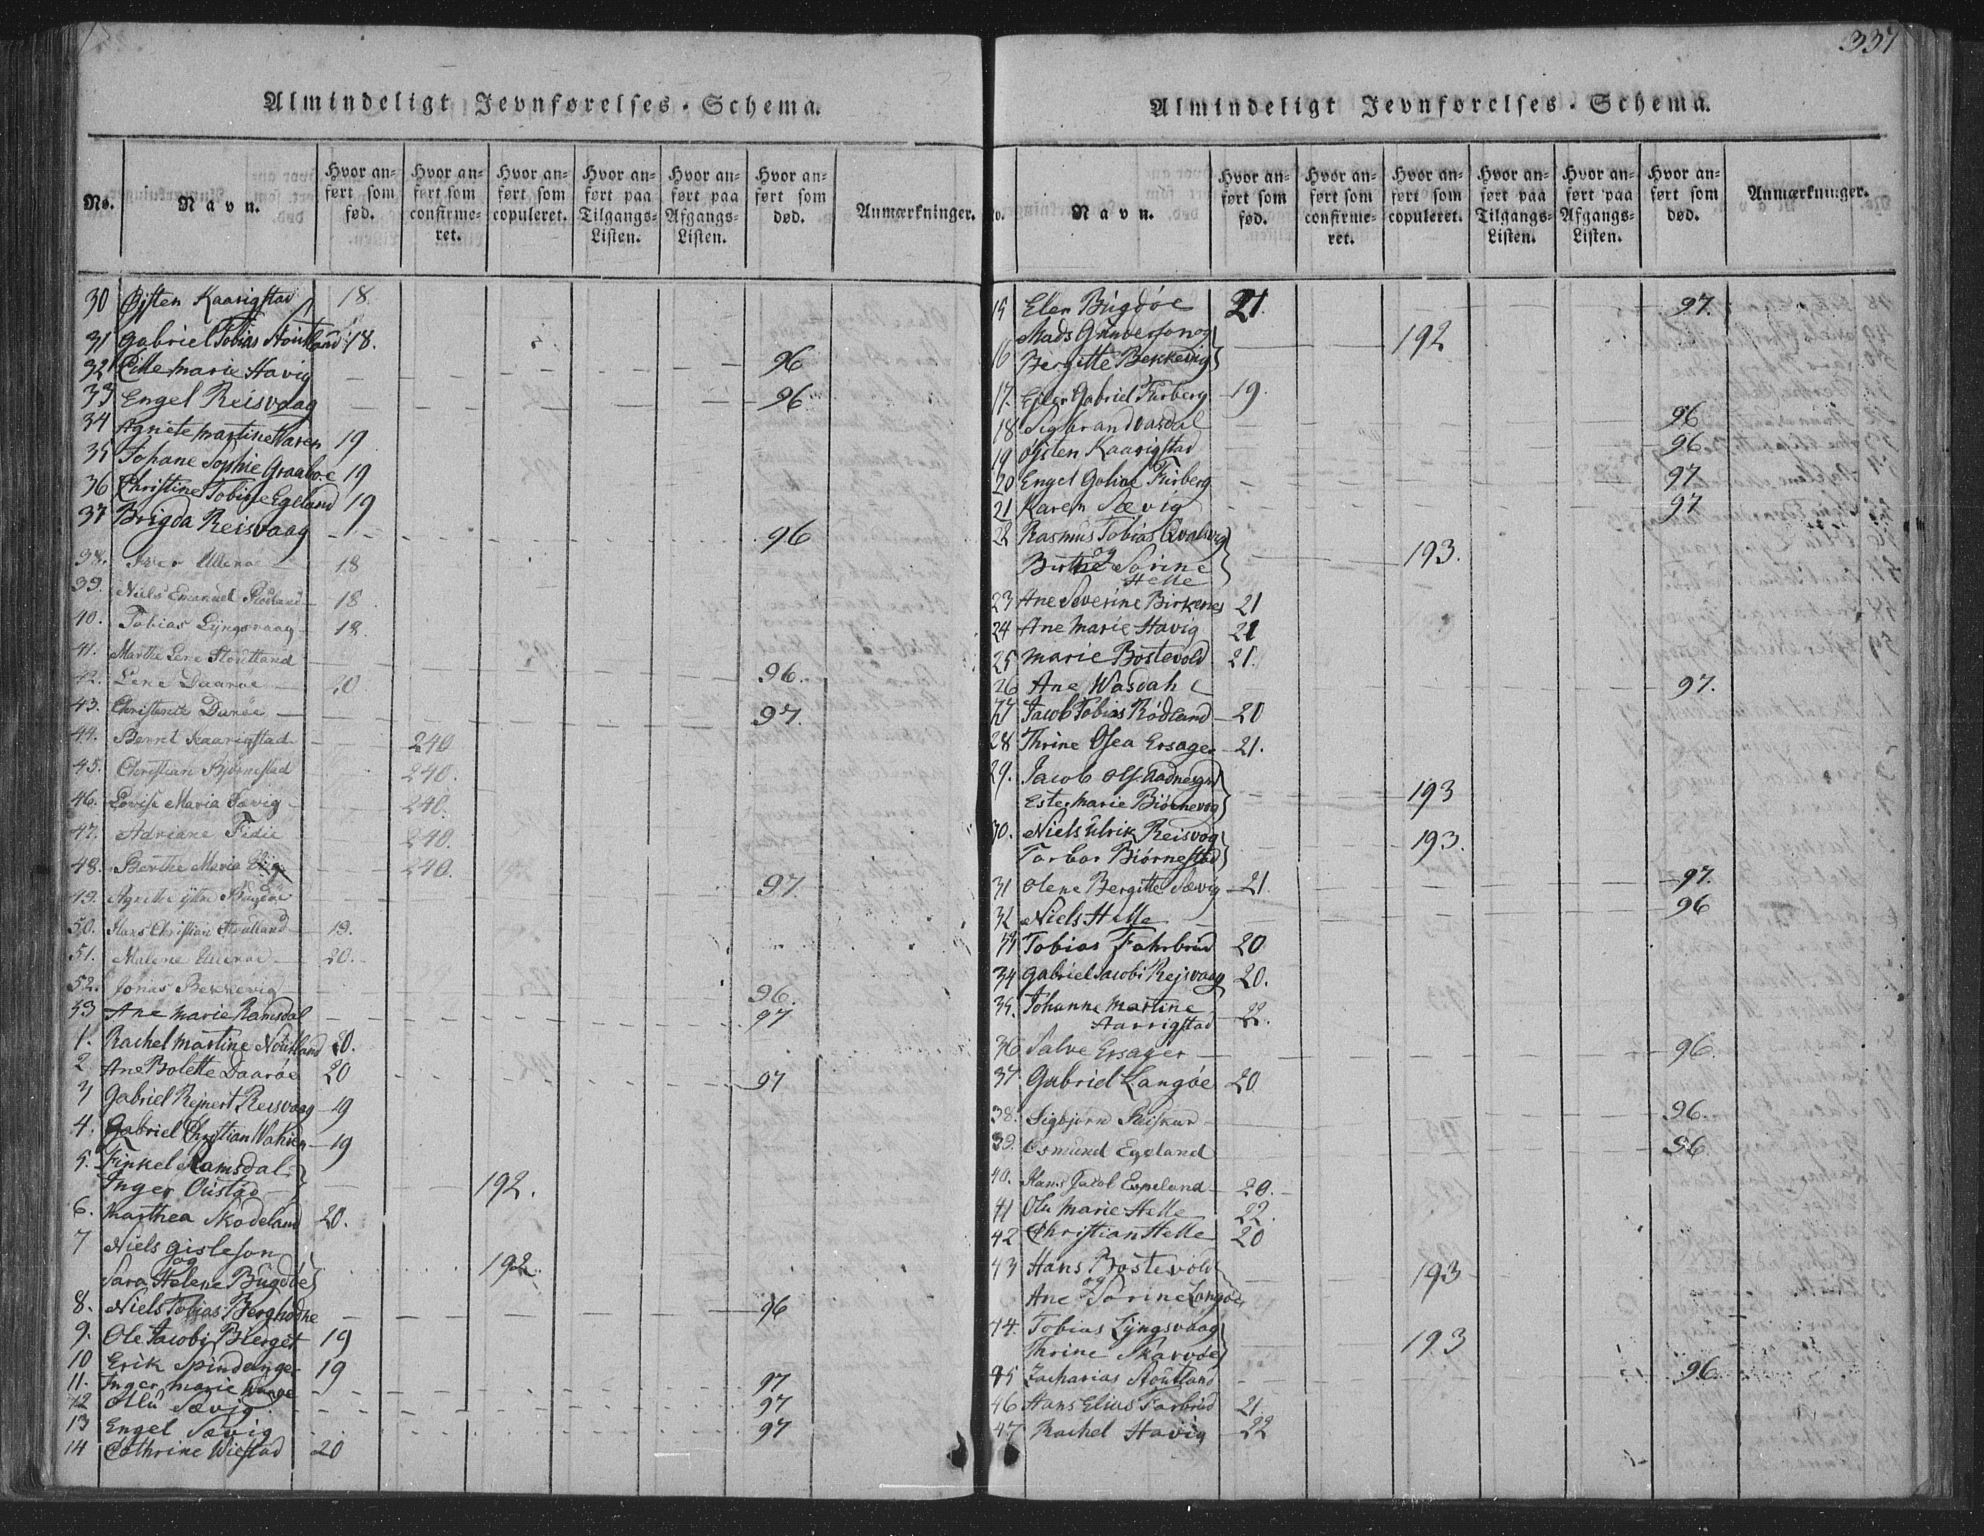 337
Almindeligt Jevnførelses-Schema.
No. Navn. Hvor anført som fød. Hvor anført som confirmeret. Hvor anført som copuleret. Hvor anført paa Tilgangs-Listen. Hvor anført paa Afgangs-Listen. Hvor anført som død. Anmærkninger.
30 Østen Kaarigstad 18.
31 Gabriel Tobias Stoutland 18.
32 Cille Marie Havig 96
33 Engel Reisvaag 96
34 Agnete Martine Varen 19
35 Johane Sophie Graaboe 19
36 Christine Tobine Egeland 19
37 Brigda Reisvaag 96
38. Iver Ullerøe 18
39. Niels Emanuel Rødland 18
40. Tobias Lÿngsvaag 18.
41. Marthe Lene Stoutland 96.
42. Lene Daarøe 20
43. Christense Darøe 97.
44. Berret Kaarigstad 240
45. Christian Bjørnestad 240.
46. Lovise Maria Sævig 240.
47. Adriane Fidie 240.
48. Berthe Maria 240.
49. Agnethe Bugdøe 97.
50. Hans Christian Stoutland 19.
51. Malene Ullerøe 20.
52. Jonas Bekkevig 96.
53 Ane Marie Ramsdal 97
1. Rachel Martine Noutland 20.
2 Ane Bolette Daarøe 20 97
3 Gabriel Rejnert Reisvaag 19
4. Gabriel Christian Vatnen 19
5. Finkel Ramsdal
Inger Oustad 192.
6. Marthea Skodeland 20.
7 Niels Gisleson
og
Sara Helene Bugdøe 192
8. Niels Tobias Berghodne 96
9. Ole Jacobi Bierget 19
10 Erik Spindanger 19
11. Inger Marie Waage 97
12 Ollu Sævig 97
13 Engel Sævig 97
14 Cathrine Wiestad 20
Almindeligt Jevnførelses-Schema.
No. Navn. Hvor anført som fød. Hvor anført som confirmeret. Hvor anført som copuleret. Hvor anført paa Tilgangs-Listen. Hvor anført paa Afgangs-Listen. Hvor anført som død. Anmærkninger.
15 Elen Bugdøe 21. 97.
Mads Gunderson og
16 Bergitte Bekkevig 192
17. Ejler Gabriel Furberg 19.
18 Sigbrand Vasdal 96
19 Østen Kaarigstad 96
20 Engel Goline Furberg 97
21 Karen Sævig 97
22 Rasmus Tobias Qvalsvig
og
Birthe Sorine 193.
Helle
23 Ane Severine Birkenes 21
24 Ane Marie Havig 21
25 Marie Bostevold 21.
26 Ane Wasdahl 97.
27 Jacob Tobias Rødland 20
28 Thrine Osea Ersager 21.
29. Jacob Ols
Ester Marie Biørnevog 193
30. Niels Ulrik Reisvog
Torbor Biørnestad 193.
31 Olene Bergitte Sævig 21. 97.
32 Niels Helle 96
33 Tobias Fahrbrud 20
34 Gabriel Jacobi Rejsvaag 20.
35. Johanne Martine
Aarrigstad 22.
36 Salve Ersager 96.
37 Gabriel Langøe 20
38. Sigbjørn 96.
39. Osmund Egeland 96.
40. Hans Jacob Espeland 20.
41 Olu Marie Helle 22.
42 Christian Helle 20
43 Hans Bostevold
og
Ane Dorine Langøe 193
44. Tobias Lÿngsvaag
Thrine Skarvøe 193
45 Zacharias Stoutland 96.
46 Hans Elius Farbrud 21.
47 Rachel Havig 22